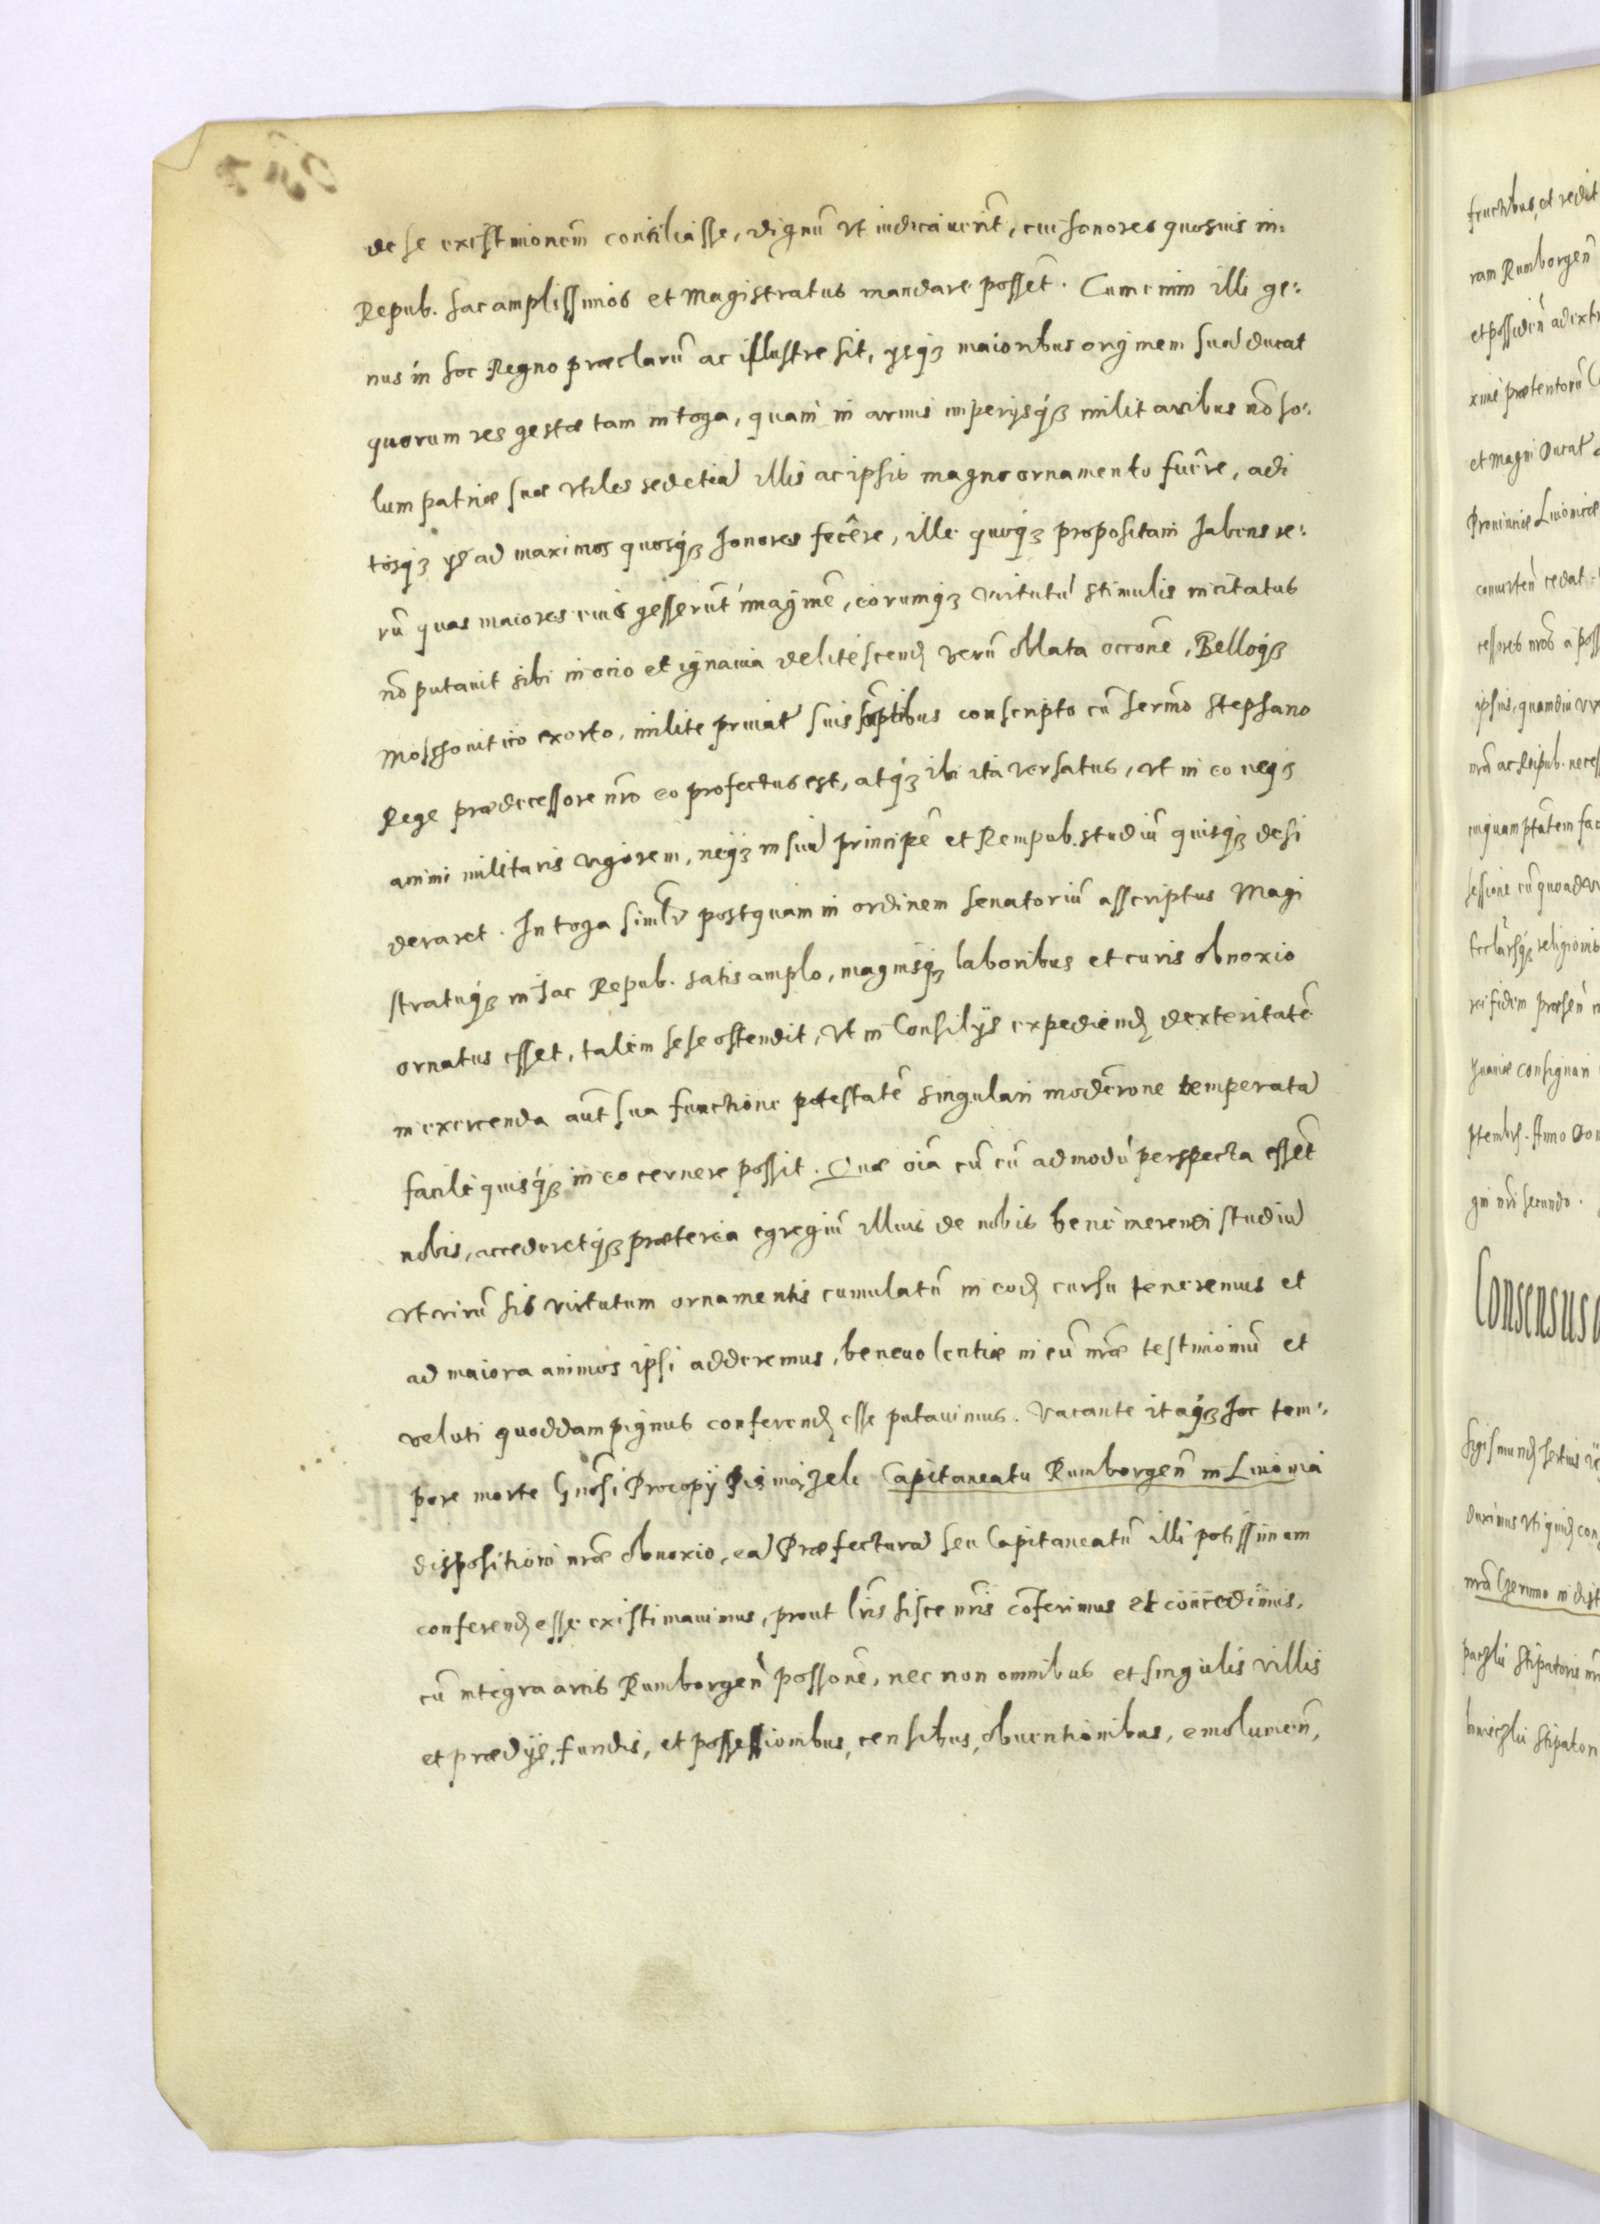 de se existimonem̃ conciliasse, dignũ vt iudicauerĩt, cui honores quosuis in
Repub. hac amplissimos et Magistratus mandare possẽt. Cum enim illi ge-
nus in hoc Regno præclarũ ac illustre sit, ysq́ʒ maioribus originem suã ducat
quorum res gestæ tam in toga, quam in armis imperysq́ʒ militaribus nõ so-
lum patriæ suæ vtiles sed etiã illis ac ipsis magno ornamento fuêre, adi
tusq́ʒ ys ad maximos quosq́ʒ honores fecêre, ille quoq́ʒ propositam habens re-
rũ quas maiores eius gesserũt imaginẽ, eorumq́ʒ virtutũ stimulis incitatus
nõ putauit sibi in ocio et ignauia delitescend, verũ oblata occone, Belloq́ʒ
Moschouitico exorto, milite priuat suis sumptibus conscripto cũ Sermõ Stephano
Rege prædecessore nrõ eo profectus est, atq́ʒ ibi ita versatus, vt in eo neq́ʒ
animi militaris vigorem, neq́ʒ in suũ principẽ et Rempub. studiũ quisq́ʒ desi
deraret. In toga simlr postquam in ordinem senatoriũ asscriptus Magi
stratuq́ʒ in hac Repub. satis amplo, magnisq́ʒ laboribus et curis obnoxio
ornatus esset, talem sese ostendit, vt in Consilys expediend dexteritatẽ
in exercenda aũt sua functione potestatẽ singulari moderõne temperatã
facile quisq́ʒ in eo cernere possit. Quæ oĩa cũ cũ admodũ perspecta essẽt
nobis, accederetq́ʒ præterea egregiũ illius de nobis bene merendi studiũ
vt virũ his virtutum ornamentis cumulatũ in eod cursu teneremus et
ad maiora animos ipsi adderemus, beneuolentiæ in eũ nræ testimoniũ et
veluti quoddam pignus conferend esse putauimus. Vacante itaq́ʒ hoc tem-
pore morte Gnõsi Procopy Capitaneatu Rumborgeñ in Liuonia
dispositioni nræ obnoxio, eã Præfecturã seu Capitaneatũ illi potissimum
conferend esse existimauimus, prout lrĩs hisce nrĩs cõferimus et concedimus,
cũ integra arcis Rumborgeñ possone, nec non omnibus et singulis villis
et prædys, fundis, et possessionibus, censibus, obuentionibus, emolumeñ,
fructibus, et redit
ram Rumborgeñ
et possideñ ad ext
xime prætentorũ
et Magni Ducat
Prouinciæ Liuonicæ
conuerteñ cedat
cessores nros a poss
ipsius, quamdiu vix
nrã ac Reipub. necess
cuiquam ptãtem fac
sessione cũ quoad vi
religionis
rei fidem præseñ
consignari
ptembr. Anno Do
gni nri secundo.
Consensus
Sigismund Tertius
duximus
nrã in dist
stipatoris nr
stipatori